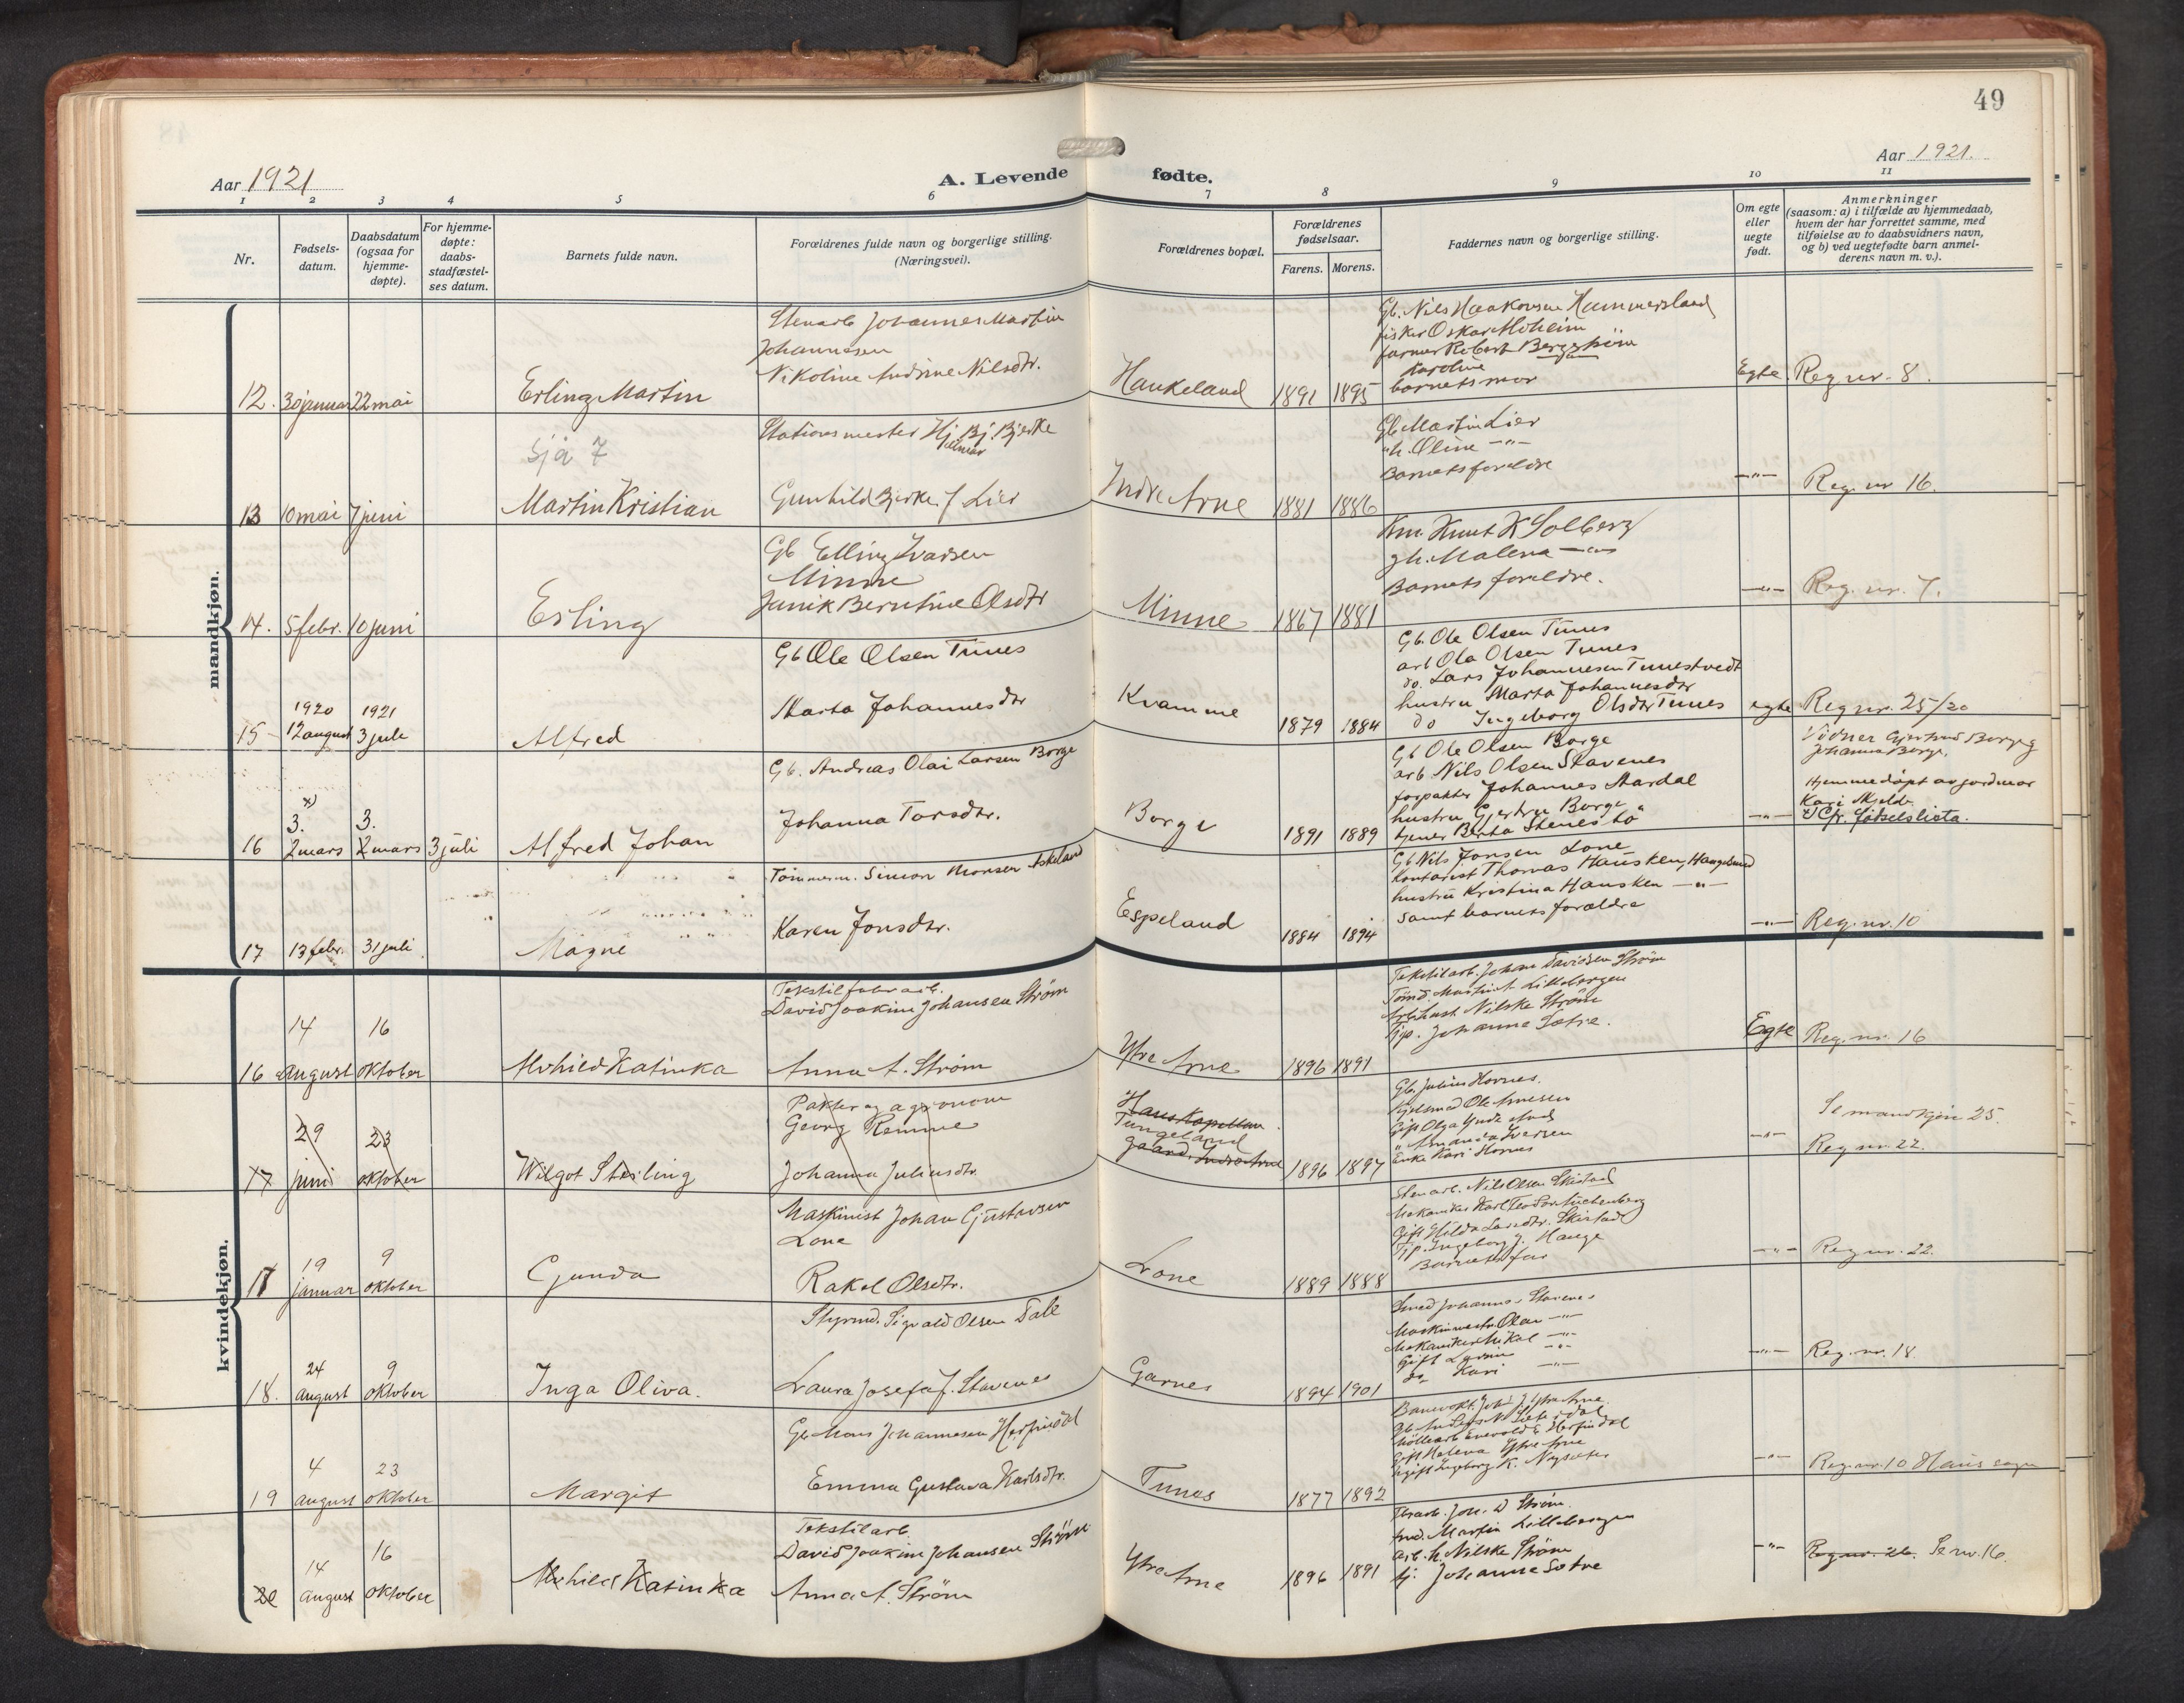 49
Aar 1921
A. Levende fødte.
Aar 1921.
1 2 3 4 5 6 7 8 9 10 11
Nr.
Fødsels-
datum.
Daabsdatum
(ogsaa for
hjemme-
døpte).
For hjemme-
døpte:
daabs-
stadfæstel-
ses datum.
Barnets fulde navn.
Forældrenes fulde navn og borgerlige stilling.
(Næringsvei).
Forældrenes bopæl.
Forældrenes
fødselsaar.
Farens. Morens.
Faddernes navn og borgerlige stilling.
Om egte
eller
uegte
født.
Anmerkninger
(saasom: a) i tilfælde av hjemmedaab,
hvem der har forrettet samme, med
tilføielse av to daabsvidners navn,
og b) ved uegtefødte barn anmel-
derens navn m. v.).
mandkjøn.
12. 30 januar 22 mai
Erling Martin
Stenarb Johannes Martin
Johannesen
Nikoline Andrine Nilsdtr.
Haukeland 1891 1895
Gb. Nils Haakonsen Hammersland
fisker Oskar Moheim
farmer Robert
Karoline
barnets mor
Egte. Reg nr. 8.
Sjå 7
13 10 mai 7 juni
Martin Kristian
Stationsmester Hj. Bj. Bjerke
Hjelmar
Gunhild Bjerke f. Lier
Indre Arne 1881 1886
Gb Martin Lier
h. Oline -"-
Barnets foreldre
-"- Reg. nr 16.
14. 5 febr. 10 juni
Erling
Gb Elling Ivarsen
Minne
Janik Berntine Olsdtr
Minne 1867 1881
Km. Knut K Solberg
gh. Malena -"-
Barnets foreldre.
-"- Reg. nr. 7.
1920 1921
15 12 august 3 juli
Alfred
Gb Ole Olsen Tunes
Marta Johannesdtr
Kvamme 1879 1884
Gb. Ole Olsen Tunes
arb Ola Olsen Tunes
do. Lars Johannesen Tunestvedt
hustru Marta Johannesdtr
do Ingeborg Olsdtr Tunes
egte Reg nr. 25/20
x)
3. 3.
16 2 mars 2 mars 3 juli
Alfred Johan
Gb. Andreas Olai Larsen Borge
Johanna Torsdtr.
Borge 1891 1889
Gb Ole Olsen Borge
arb. Nils Olsen Stavenes
forpakter Johannes Aardal
hustru Gjertru Borge
tjener Berta Stenestö
-"-
Vidner Gjertrud Borge
Johanna Borge.
Hjemmedöpt av jordmor
Kari Mjelde.
x) Cfr. födselslista.
17 13 febr. 31 juli
Magne
Tömmerm. Simon Monsen Askeland
Karen Jonsdtr.
Espeland 1884 1894
Gb Nils Jonsen Lone
Kontorist Thomas Hausken, Haugesund
hustru Kristina Hausken -"-
samt barnets forældre
-"- Reg. nr. 10
kvindekjøn.
14 16
16 august oktober
Alvhild Katinka
Tekstilfabr arb.
David Joakim Johansen Ström
Anna A. Ström
Ytre Arne 1896 1891
Tekstilarb. Johan Davidsen Ström
Tömd. Martin A. Lillebergen
Nilske Ström
Tjp. Johanne Sætre.
Egte Reg. nr. 16
29 23
17 juni oktober
Wilgot Sterling
Pakter og agronom
Georg Remme
Johanna Juliusdtr.
Haus Kapellan
Tungeland
gaard. Indre Arne
1896 1897
Gb. Julius Hornes.
Ole Arnesen
Gift Olga
" Amanda Iversen
Enke Kari Hornes
-"-
Se mandkjøn 25.
Reg nr. 22.
19 9
17 januar oktober
Gunda
Maskinist Johan Gustavsen
Lone
Rakel Olsdtr.
Lone 1889 1888
Stenarb. Nils Olsen Skistad
Mekaniker Karl Teodor
Gift Hilda Larsdtr. Skistad
Tjp. Ingeborg J. Hauge
Barnets far
-"- Reg nr. 22.
24 9
18. august oktober
Inga Oliva.
Styrmd. Sigvald Olsen Dale
Laura Josefa J. Stavenes
Garnes 1894 1901
Smed Johannes Stavenes
Maskinmestr. Olav -"-
Mekaniker Mikal -"-
Gift -"-
do Kari -"-
-"- Reg. nr. 18.
4 23
19 august oktober
Margit
Gb Mons Johannesen Herfindal
Emma Gustava Karlsdtr.
Tunes 1877 1892
Banevokt. Joh. J. Ytre Arne.
Gift Malena Ytre Arne
Ugift Ingeborg K. Nysæter
-"- Reg. nr. 10 Haus sogn
14 16
20 august oktober
Alvhild Katinka
Tekstilarb.
David Joakim Johansen Ström
Anna A. Ström
Ytre Arne 1896 1891
Joh. D Ström.
tmd. Martin Lillebergen
arb. h. Nilske Ström
tj. Johanne Sætre
-"- Reg. nr. 26. Se nr. 16.